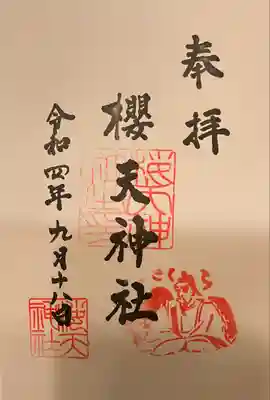 奉拝
櫻天神社
令和四年九月十八日
さくら